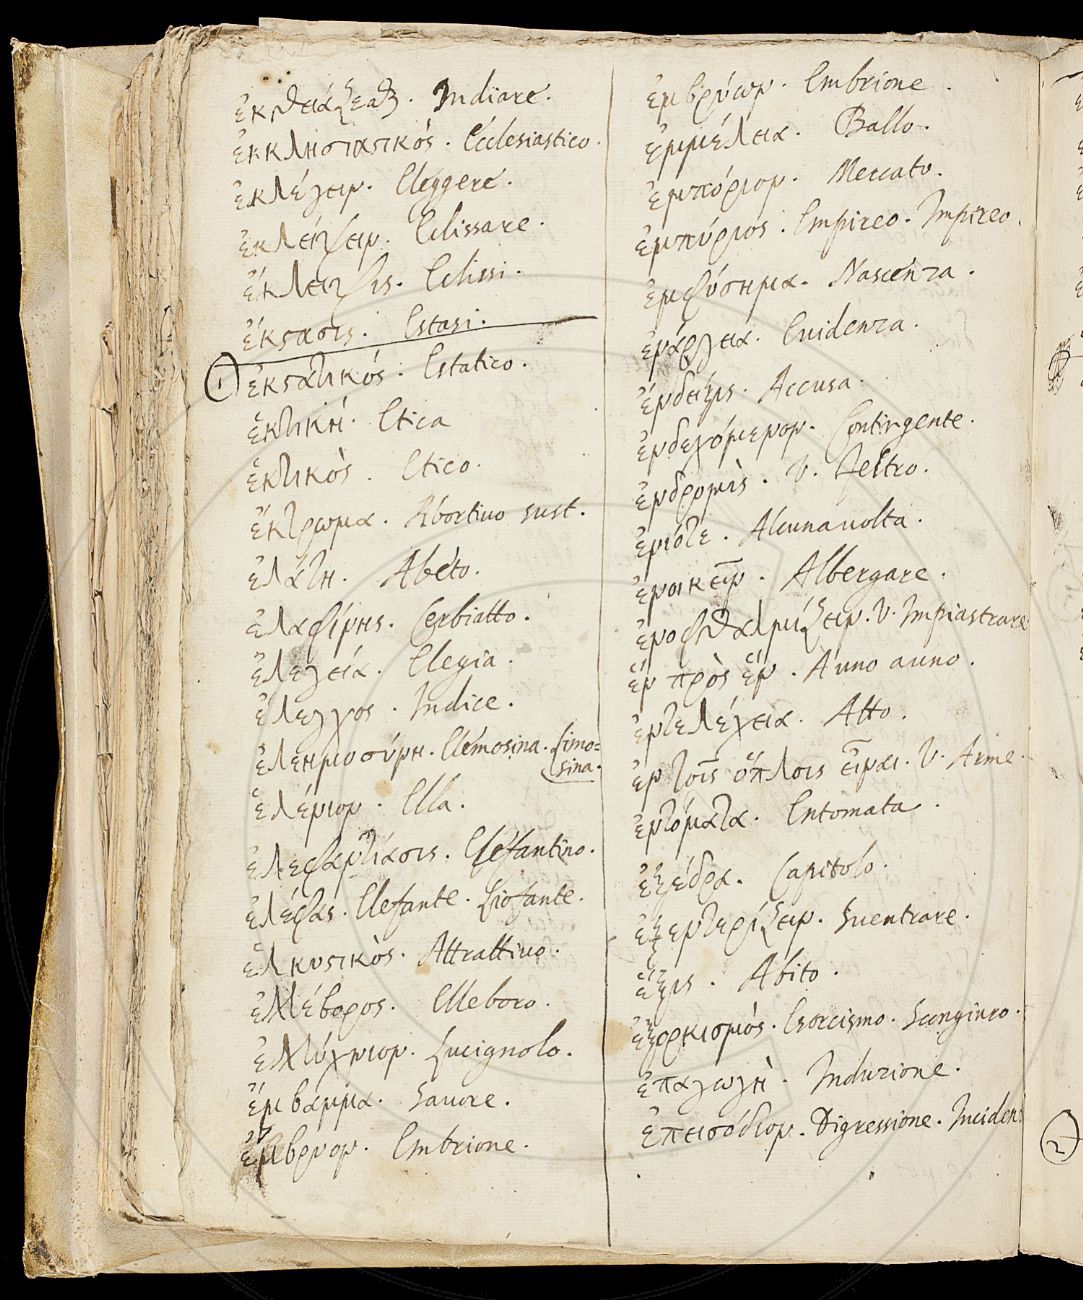 ἐκθειάζεσθαι. Indiare.
ἐκκλησιαστικός. Ecclesiastico.
ἐκλέγειν. Eleggere.
ἐκλείψειν. Eclissare.
ἔκλειψις. Eclissi.
ἔκστασις. Estasi.
1 ἐκστατικός. Estatico.
ἑκτική. Etica
ἑκτικὸς. Etico.
ἔκτρωμα. Abortiuo sust.
ἐλάτη. Abéto.
ἐλαφίνης. Cerbiatto.
ἐλεγεία. Elegia.
ἔλεγχος. Indice.
ἐλεημοσύνη. Elemosina. Limo=
sina.
ἑλένιον. Ella.
ἐλεφαντίασις. Elefantino.
ἐλέφας. Elefante. Liofante.
ἑλκυστικὸς. Attrattiuo.
ἑλλέβορος. Elleboro.
ἐλλύχνιον. Lucignolo.
ἔμβαμμα. Sauore.
ἔμβρυον. Embrione.
ἐμβρύων. Embrione.
ἐμμέλεια. Ballo.
ἐμπόριον. Mercato.
ἐμπύριος. Empireo. Impireo.
ἐμφύσημα. Nascenza.
ἐνάργεια. Euidenza.
ἔνδειξις. Accusa.
ἐνδεχόμενον. Contingente.
ἐνδρομὶς. V. Feltro.
ἐνιότε. Alcunauolta.
ἐνοικεῖν. Albergare.
ἐνοφθαλμίζειν. V. Impiastrare
ἓν πρὸς ἓν. A uno a uno.
ἐντελέχεια. Atto.
ἐν τοῖς ὅπλοις εἶναι. V. Arme.
ἐντόματα. Entomata.
ἐξέδρα. Capitolo.
ἐξεντερίζειν. Suentrare.
ἕξις. Abito.
ἐξορκισμὸς. Esorcismo. Scongiuro.
ἐπαγωγὴ. Induzione.
ἐπεισόδιον. Digressione. Inciden
2